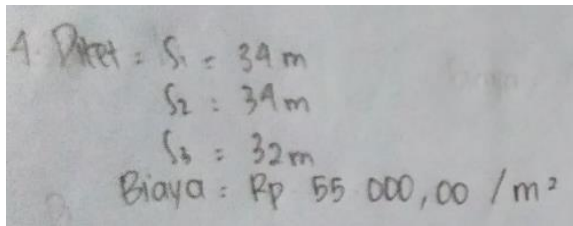 4. Diket = S₁ = 34 m
S₂ : 34 m
S₃ : 32 m
Biaya : Rp 55 000,00 / m²